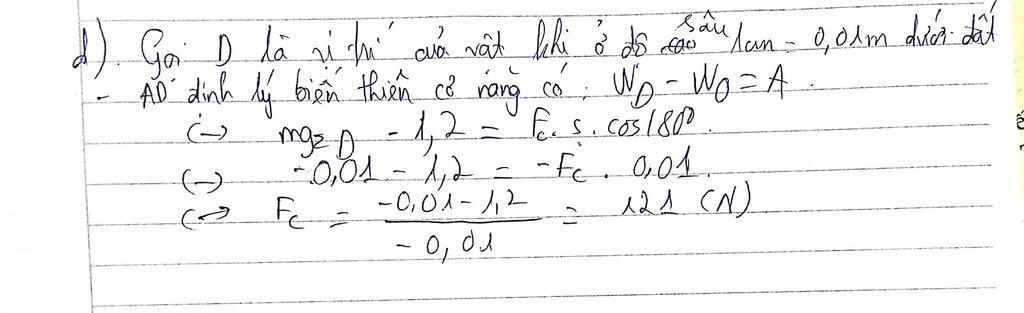 d). Gọi D là vị trí của vật khi ở độ sâu 1cm = 0,01m dưới đất
- AD định lý biến thiên cơ năng có: W_D - W_O = A.
(-) mgz_D - 1,2 = F_c. s. cos180°.
(-) -0,01 - 1,2 = -F_c. 0,01.
(-> F_c = \frac{-0,01-1,2}{-0,01} = 121 (N)